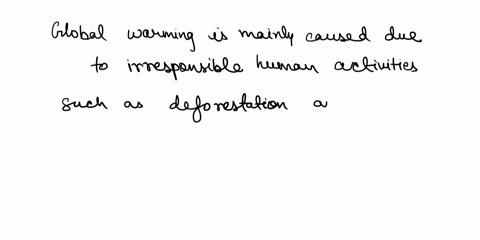 Global warming is mainly caused due
to irresponsible human activities
such as deforestation a